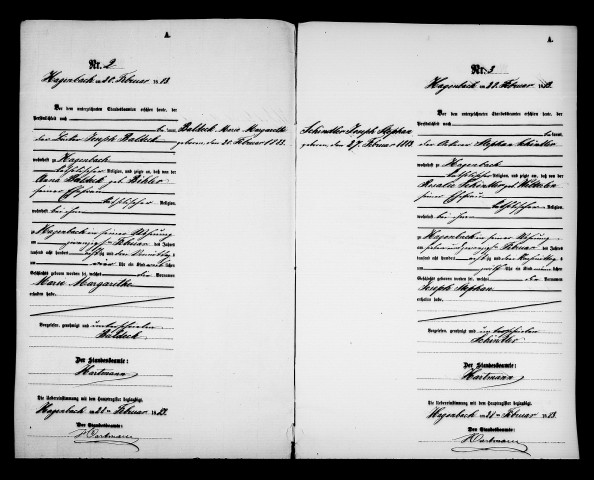 A.
Nr. 2
Hagenbach am 21. Februar 1883.
Vor dem unterzeichneten Standesbeamten erschien heute, der
Persönlichkeit nach
bekannt,
der Joseph Baldeck
wohnhaft zu Hagenbach
katholischer Religion, und zeigte an, daß von der
Anna Baldeck geb.
seiner Ehefrau
katholischer Religion,
wohnhaft bei ihm
zu Hagenbach in seiner Wohnung
am Februar des Jahres
tausend acht hundert
um vier Uhr ein Kind weiblichen
Geschlechts geboren worden sei, welches die Vornamen
Maria Margaretha
erhalten habe.
Vorgelesen, genehmigt und unterschrieben
Baldeck
Der Standesbeamte:
Hartmann
Die Uebereinstimmung mit dem Hauptregister beglaubigt.
Hagenbach am 21ten Februar 1883.
Der Standesbeamte:
Hartmann
Baldeck Maria Margaretha
geboren den 20. Februar 1883.
A.
Nr. 3
Hagenbach am 28. Februar 1883.
Vor dem unterzeichneten Standesbeamten erschien heute, der
Persönlichkeit nach
bekannt,
der Stephan Schindler
wohnhaft zu Hagenbach
katholischer Religion, und zeigte an, daß von der
Rosalia Schindler geb.
seiner Ehefrau
katholischer Religion,
wohnhaft bei ihm
zu Hagenbach in seiner Wohnung
am sieben und zwanzigsten Februar des Jahres
tausend acht hundert
um Uhr ein Kind männlichen
Geschlechts geboren worden sei, welches die Vornamen
Joseph Stephan
erhalten habe.
Vorgelesen, genehmigt und unterschrieben
Schindler
Der Standesbeamte:
Hartmann
Die Uebereinstimmung mit dem Hauptregister beglaubigt.
Hagenbach am Februar 1883.
Der Standesbeamte:
Hartmann
Schindler Joseph Stephan
geboren den 27. Februar 1883.